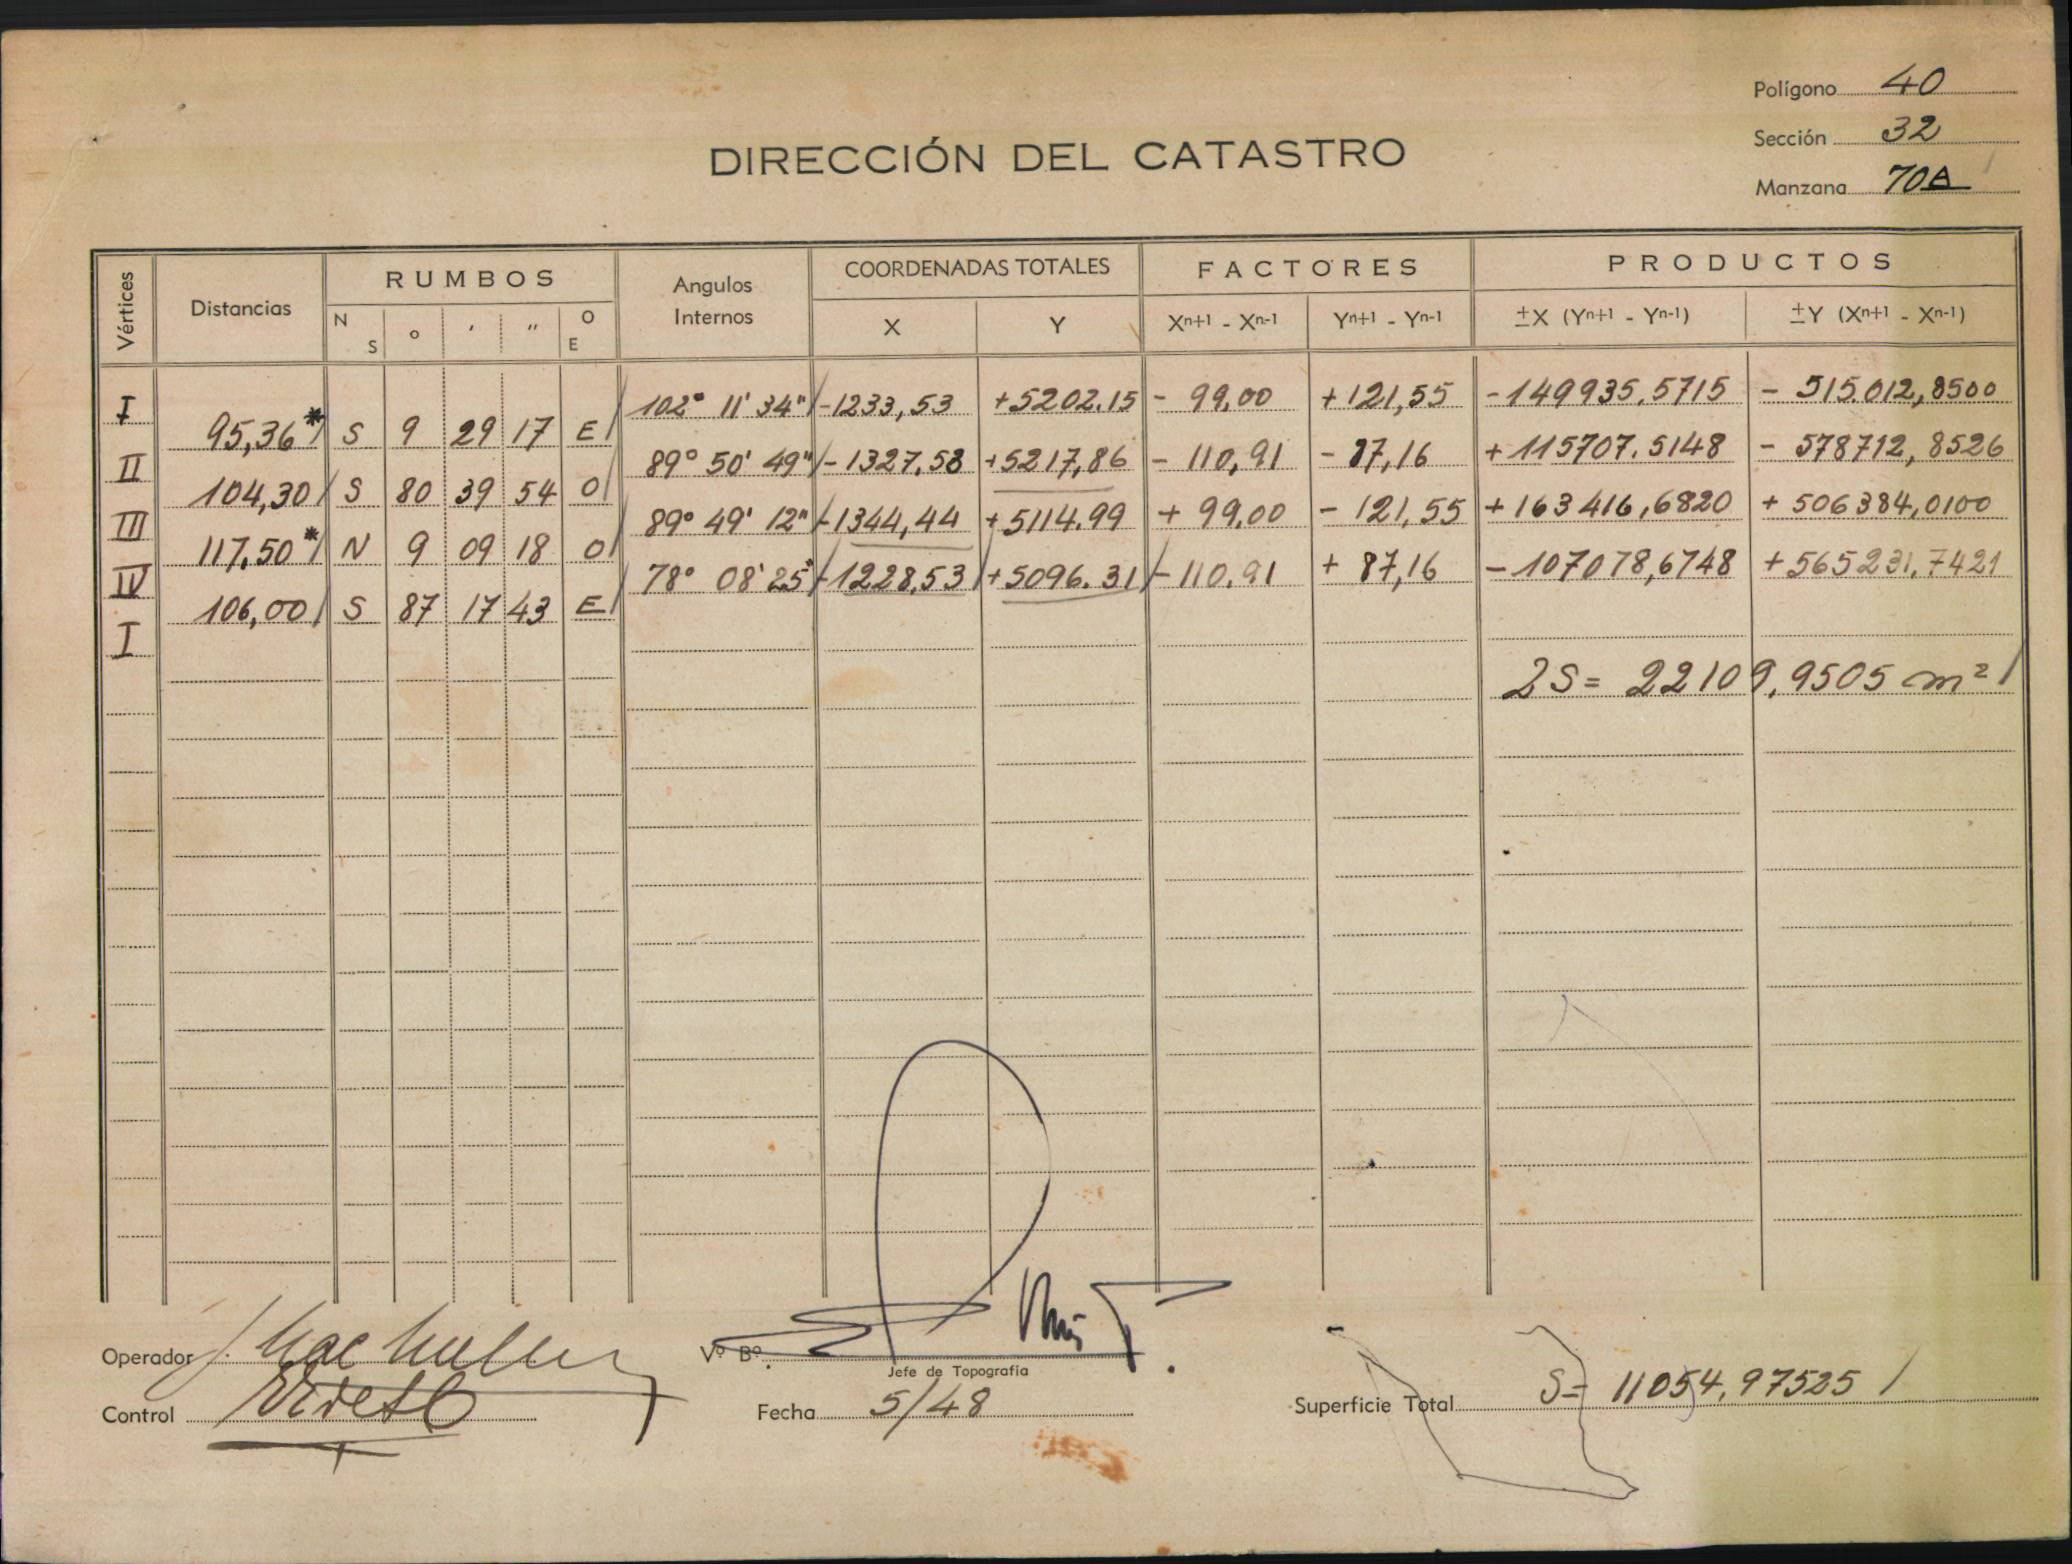 Polígono 40
Sección 32
Manzana 70A
DIRECCIÓN DEL CATASTRO
Vértices Distancias RUMBOS Angulos Internos COORDENADAS TOTALES FACTORES PRODUCTOS
N S ° ' " O E X Y Xn+1 - Xn-1 Yn+1 - Yn-1 ±X (Yn+1 - Yn-1) ±Y (Xn+1 - Xn-1)
I 102° 11' 34" -1233,53 +5202.15 - 99,00 +121,55 -149935,5715 - 515.012,8500
95,36* S 9 29 17 E
II 89° 50' 49" -1327,58 +5217,86 - 110,91 - 87,16 +115707,5148 - 578712,8526
104,30 S 80 39 54 O
III 89° 49' 12" -1344,44 +5114.99 + 99,00 - 121,55 +163416,6820 + 506384,0100
117,50* N 9 09 18 O
IV 78° 08' 25" -1228,53 +5096.31 -110,91 + 87,16 -107078,6748 +565231,7421
106,00 S 87 17 43 E
I
2S = 22109,9505 m²
Operador
Vº Bº
Jefe de Topografía
Control
Fecha 5/48
Superficie Total S= 11054,97525